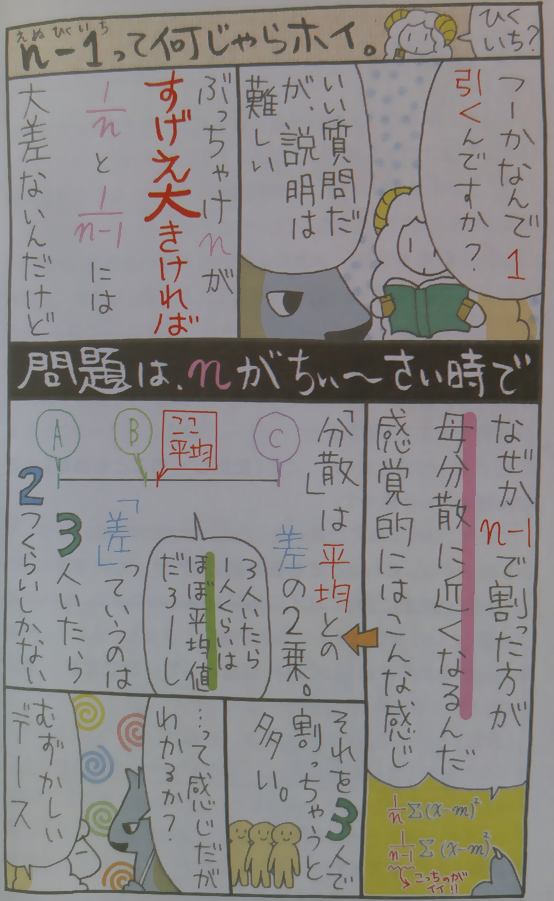 えぬひくいち
n-1って何じゃらホイ。
ひく
いち?
つーかなんで1
引くんですか?
いい質問だ
が、説明は
難しい
ぶっちゃけnが
すげえ大きければ
1/nと1/n-1には
大差ないんだけど
問題は、nがちぃ〜さい時で
なぜかn-1で割った方が
母分散に近くなるんだ
感覚的にはこんな感じ
1/n Σ(x-m)²
1/n-1 Σ(x-m)²
こっちのが
イイ!!
「分散」は平均との
差の2乗。
A
B
ここ
平均
C
3人いたら
1人くらいは
ほぼ平均値
だろーし
「差」っていうのは
3人いたら
2つくらいしかない
それを3人で
割っちゃうと
多い。
…って感じだが
わかるか?
むずかしい
デース